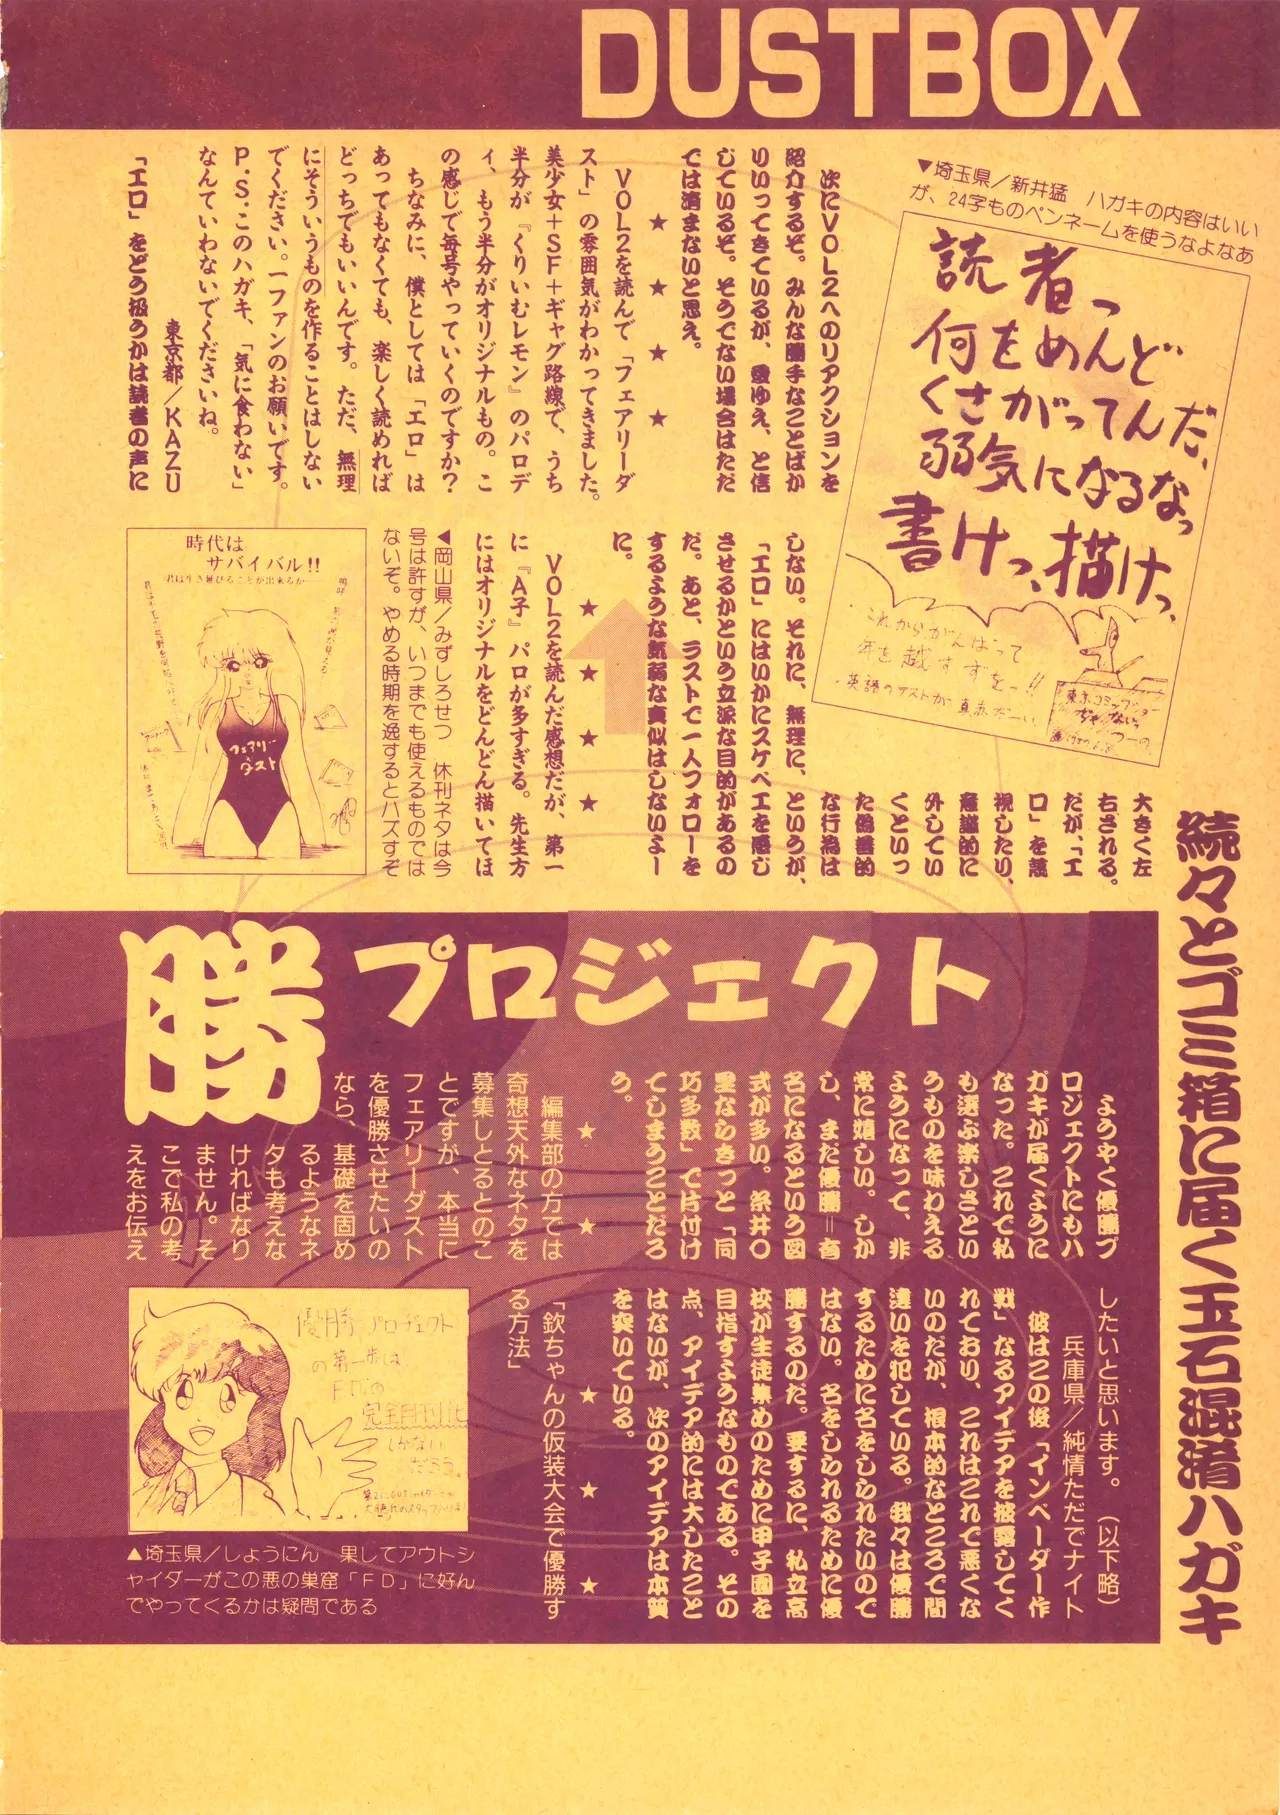 DUSTBOX
続々とゴミ箱に届く玉石混淆ハガキ
▼埼玉県／新井猛　ハガキの内容はいい
が、24字ものペンネームを使うなよなあ
読者っ
何をめんど
くさがってんだ、
弱気になるなっ
書けっ、描けっ、
・これからがんばって
年を越すすをっ!!
・英語のテストが真赤だーい
次にVOL2へのリアクションを
紹介するぞ。みんな勝手なことばか
りいってきているが、愛ゆえ、と信
じているぞ。そうでない場合はただ
では済まないと思え。
★　★　★　★
VOL2を読んで「フェアリーダ
スト」の雰囲気がわかってきました。
美少女＋SF＋ギャグ路線で、うち
半分が『くりいむレモン』のパロデ
ィ、もう半分がオリジナルもの。こ
の感じで毎号やっていくのですか？
ちなみに、僕としては「エロ」は
あってもなくても、楽しく読めれば
どっちでもいいんです。ただ、無理
にそういうものを作ることはしない
でください。一ファンのお願いです。
P.S.このハガキ、「気に食わない」
なんていわないでくださいね。
東京都／KAZU
「エロ」をどう扱うかは読者の声に
大きく左
右される。
だが、「エ
ロ」を蔑
視したり、
意識的に
外してい
くといっ
た偽善的
な行為は
しない。それに、無理に、というが、
「エロ」にはいかにスケベエを感じ
させるかという立派な目的があるの
だ。あと、ラストで一人フォローを
するような気弱な真似はしないよー
に。
★　★　★　★
VOL2を読んだ感想だが、第一
に『A子』パロが多すぎる。先生方
にはオリジナルをどんどん描いてほ
◀岡山県／みずしろせつ　休刊ネタは今
号は許すが、いつまでも使えるものでは
ないぞ。やめる時期を逸するとハズすぞ
時代は
サバイバル!!
君は生き延びることが出来るか……
フェアリー
ダスト
勝プロジェクト
ようやく優勝プ
ロジェクトにもハ
ガキが届くように
なった。これで私
も選ぶ楽しさとい
うものを味わえる
ようになって、非
常に嬉しい。しか
し、まだ優勝＝有
名になるという図
式が多い。糸井○
里なしきっと「同
巧多数」で片付け
てしまうことだろ
う。
★　★
編集部の方では
奇想天外なネタを
募集しとるとのこ
とですが、本当に
フェアリーダスト
を優勝させたいの
なら、基礎を固め
るようなネ
タも考えな
ければなり
ません。そ
こで私の考
えをお伝え
したいと思います。（以下略）
兵庫県／純情ただでナイト
彼はこの後「インベーダー作
戦」なるアイデアを披露してく
れており、これはこれで悪くな
いのだが、根本的なところで間
違いを犯している。我々は優勝
するために名をしられたいので
はない。名をしられるために優
勝するのだ。要するに、私立高
校が生徒集めのために甲子園を
目指すようなものである。その
点、アイデア的には大したこと
はないが、次のアイデアは本質
を突いている。
★　★　★
「欽ちゃんの仮装大会で優勝す
る方法」
優勝プロジェクト
の第一歩は、
F.D.の
完全月刊化
しかない
だろう。
▲埼玉県／しょうにん　果してアウトシ
ャイダーがこの悪の巣窟「FD」に好ん
でやってくるかは疑問である